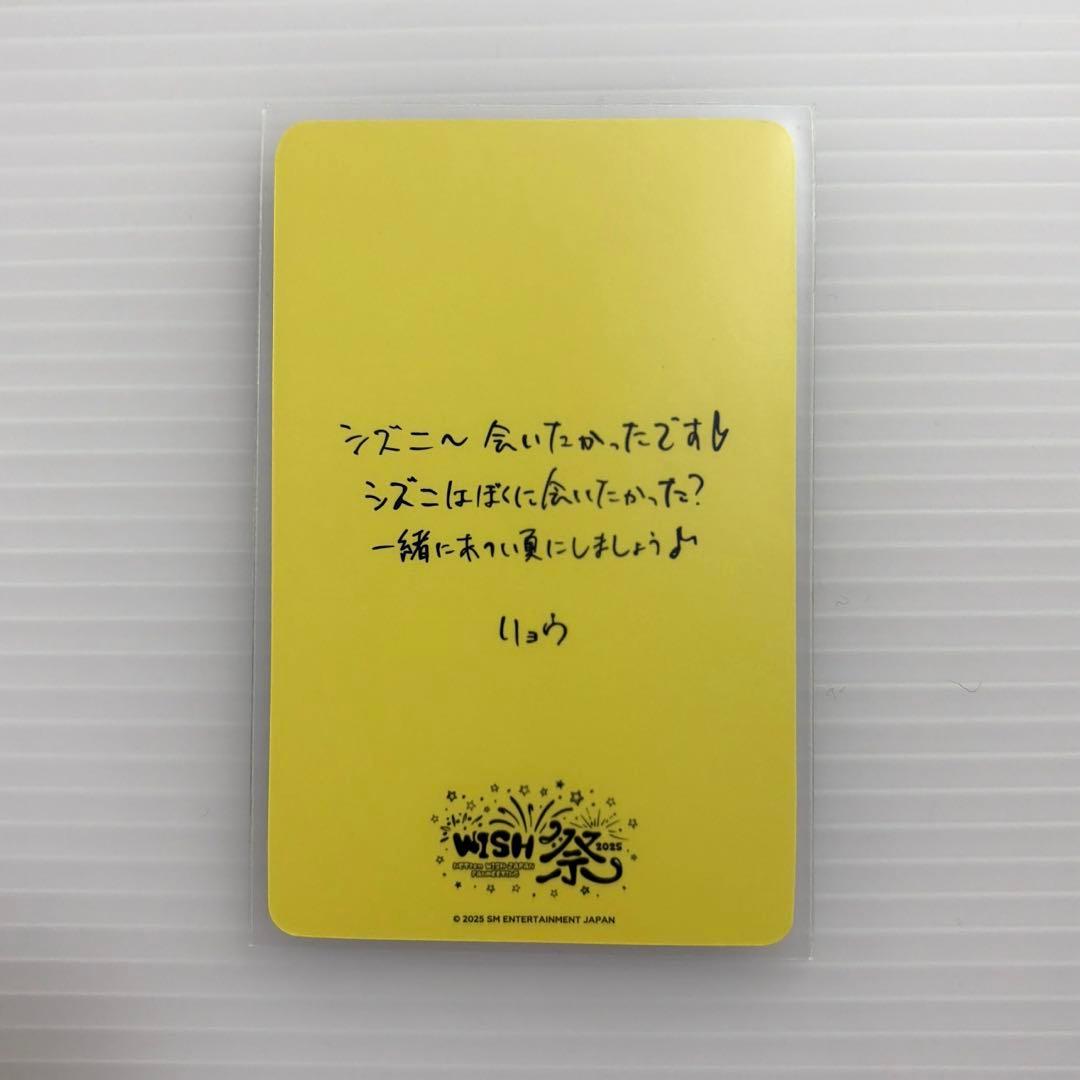 シズニ〜 会いたかったです♪
シズニはぼくに会いたかった?
一緒にあつい夏にしましょう♪
リョウ
WISH 祭 2025
NCT WISH JAPAN
FANMEETING
© 2025 SM ENTERTAINMENT JAPAN